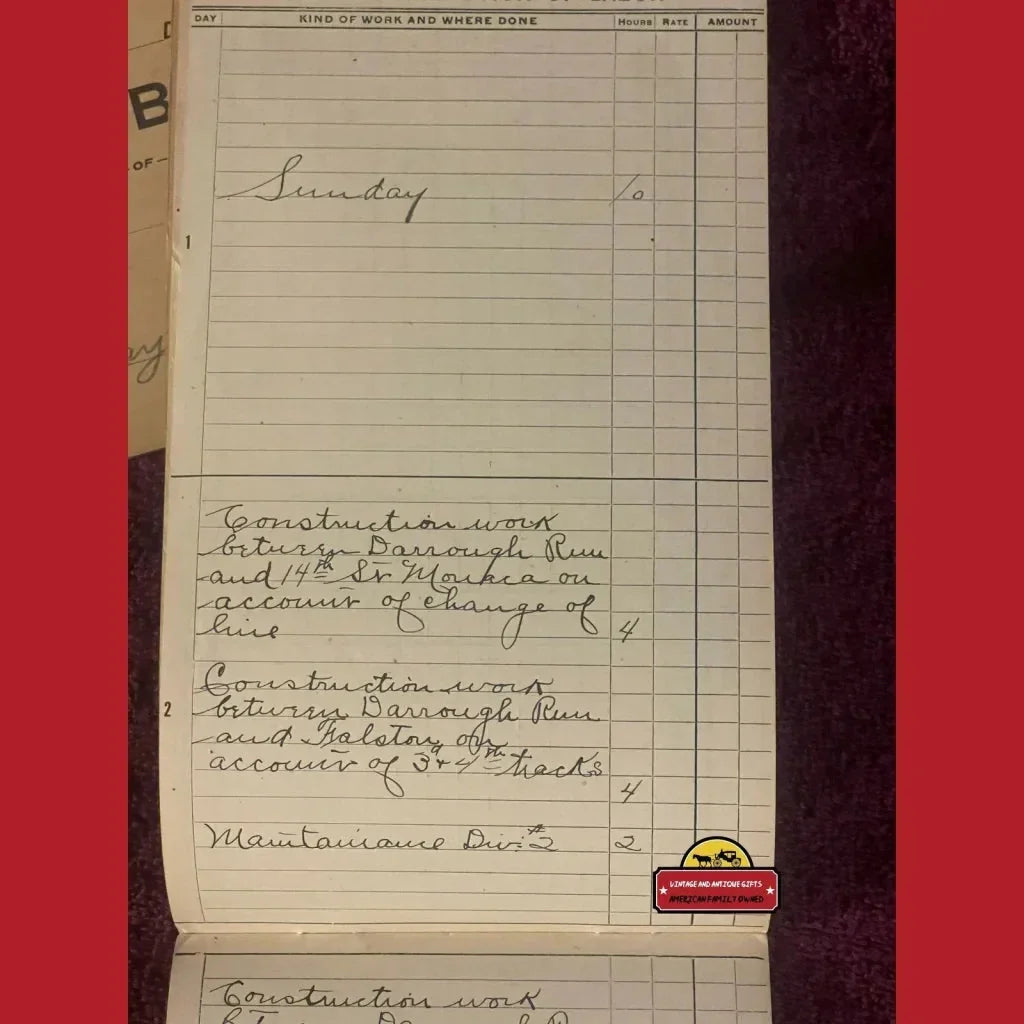 DAY KIND OF WORK AND WHERE DONE HOURS RATE AMOUNT
B
OF
Sunday 10
1
Construction work
between Darrough Run
and 14th St Monaca on
account of change of
line 4
Construction work
2 between Darrough Run
and Falston on
account of 3d & 4th tracks
4
Maintainance Div. #2 2
VINTAGE AND ANTIQUE GIFTS
AMERICAN FAMILY OWNED
Construction work